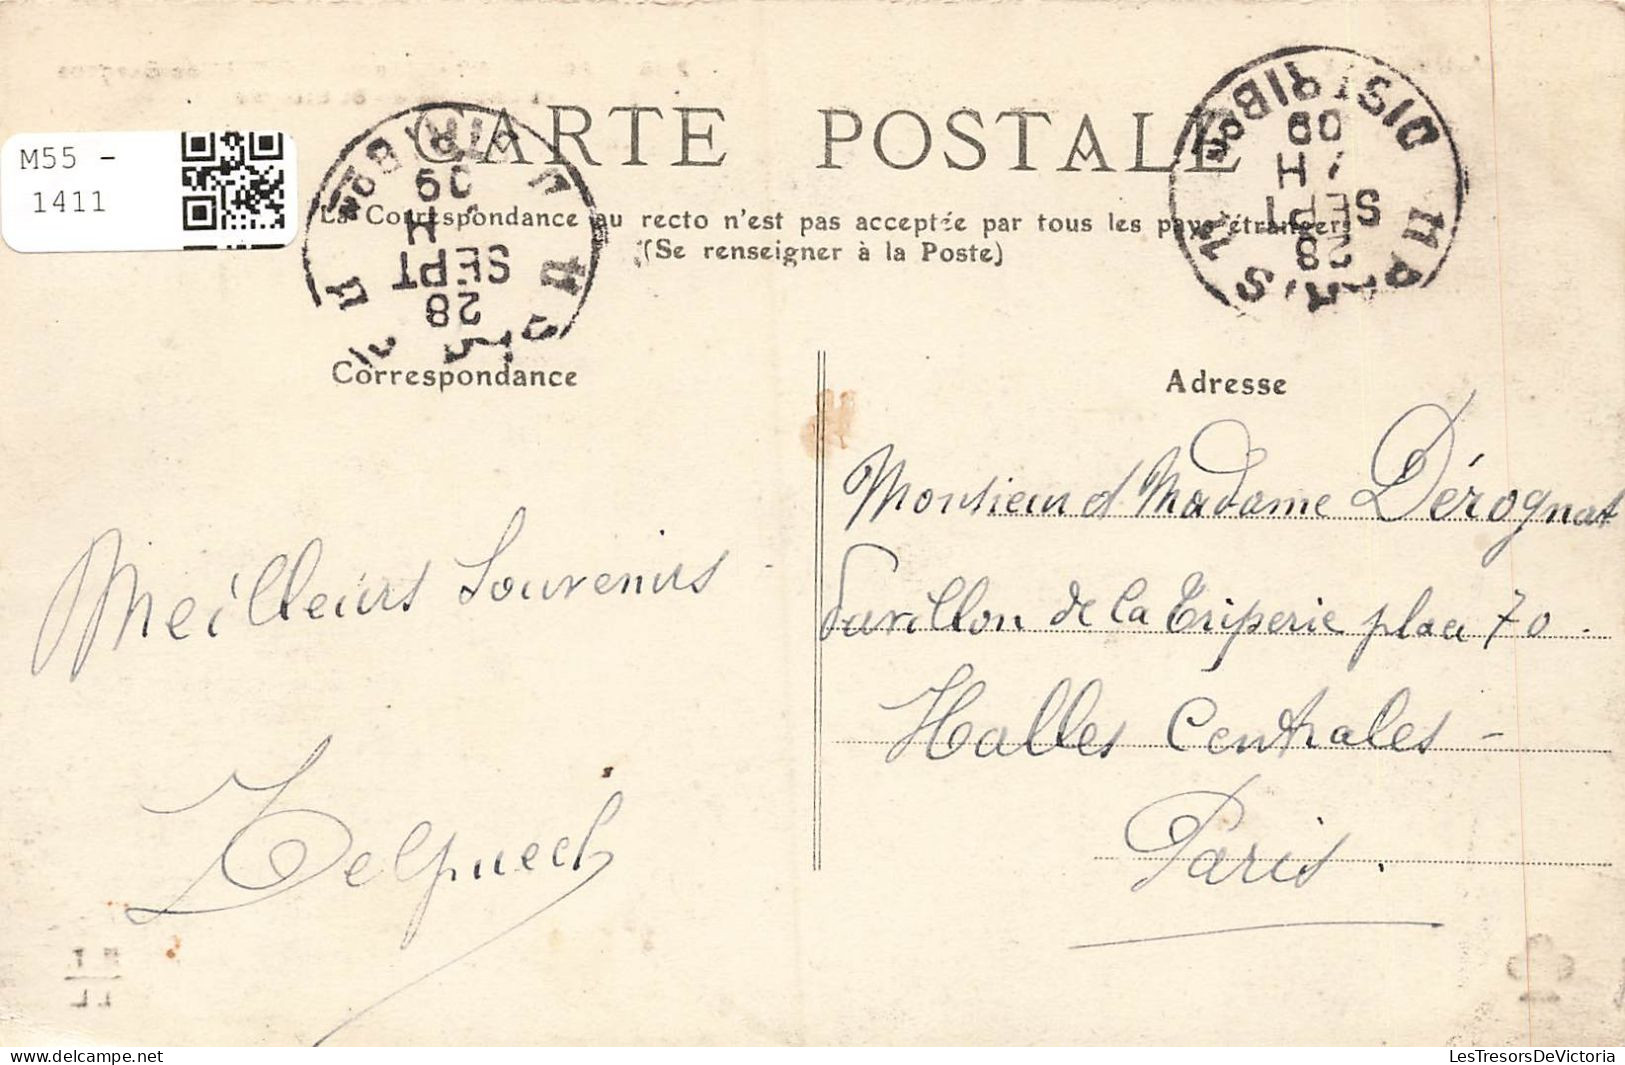 M55 -
1411
CARTE POSTALE
La Correspondance au recto n'est pas acceptée par tous les pays étrangers
(Se renseigner à la Poste)
DISTRIBon
09
H
28
SEPT
DISTRIBon
09
H
28
SEPT
Correspondance
Meilleurs Souvenirs
Delpuech
Adresse
Monsieur et Madame Dérognat
Pavillon de la Triperie place 70.
Halles Centrales -
Paris.
LesTresorsDeVictoria